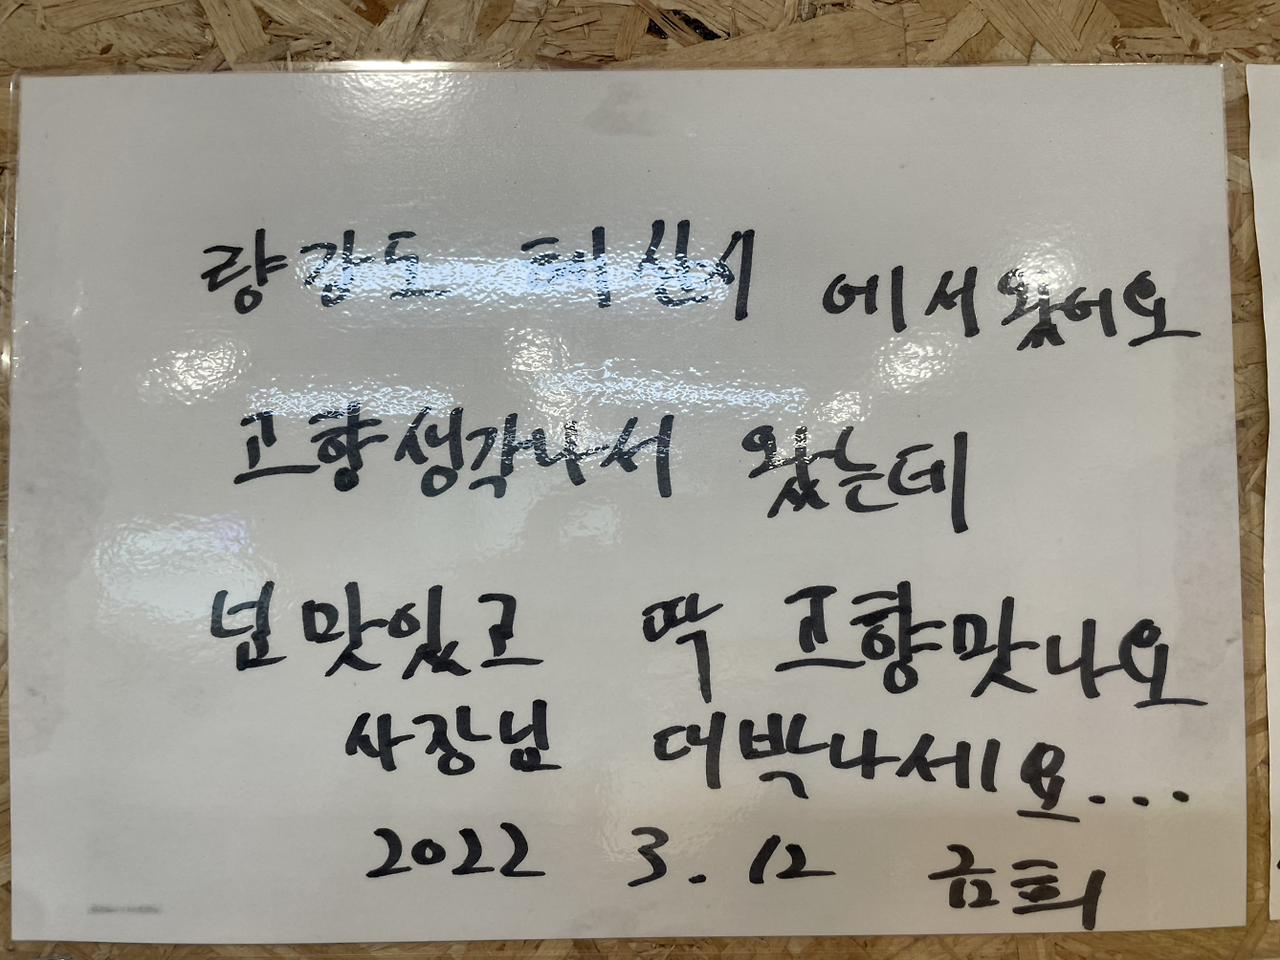 량강도 혜산시 에서 왔어요
고향생각나서 왔는데
넘 맛있고 딱 고향맛나요
사장님 대박나세요...
2022 3.12 금희